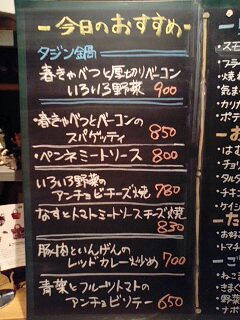 -今日のおすすめ-
タジン鍋
春きゃべつと厚切りベーコン
いろいろ野菜 900
・春きゃべつとベーコンの
スパゲッティ 850
・ペンネミートソース 800
いろいろ野菜の
アンチョビチーズ焼 780
なすとトマトミートソースチーズ焼
830
豚肉といんげんの
レッドカレー炒め 700
青菜とフルーツトマトの
アンチョビソテー 650